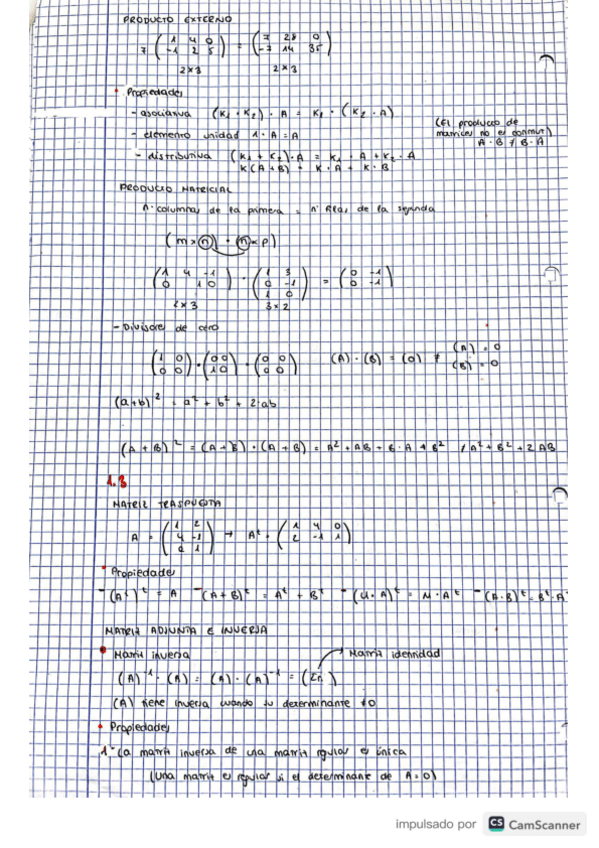 PRODUCTO EXTERNO
7 ( 1 4 0 / -1 2 5 ) = ( 7 28 0 / -7 14 35 )
2×3 2×3
• Propiedades
- asociativa (K1 · K2) · A = K1 · (K2 · A)
(El producto de
matrices no es conmut)
A · B ≠ B · A
- elemento unidad 1 · A = A
- distributiva (K1 + K2) · A = K1 · A + K2 · A
K(A+B) = K · A + K · B
PRODUCTO MATRICIAL
nº columnas de la primera = nº filas de la segunda
(m × n) · (n × p)
( 1 4 -1 / 0 1 0 ) · ( 1 3 / 0 -1 / 1 0 ) = ( 0 -1 / 0 -1 )
2×3 3×2
- Divisores de cero
( 1 0 / 0 0 ) · ( 0 0 / 1 0 ) = ( 0 0 / 0 0 ) (A) · (B) = (0) ≠ (A) = 0
(B) = 0
(a+b)² = a² + b² + 2·ab
(A + B)² = (A + B) · (A + B) = A² + AB + B · A + B² ≠ A² + B² + 2AB
1.3
MATRIZ TRASPUESTA
A = ( 1 2 / 4 -1 / 0 1 ) → Aᵗ = ( 1 4 0 / 2 -1 1 )
• Propiedades
- (Aᵗ)ᵗ = A - (A + B)ᵗ = Aᵗ + Bᵗ - (K · A)ᵗ = K · Aᵗ - (A · B)ᵗ = Bᵗ · A
MATRIZ ADJUNTA E INVERSA
• Matriz inversa Matriz identidad
(A)⁻¹ · (A) = (A) · (A)⁻¹ = (In)
(A) tiene inversa cuando su determinante ≠0
• Propiedades
1º La matriz inversa de una matriz regular es única
(Una matriz es regular si el determinante de A ≠ 0)
impulsado por CS CamScanner